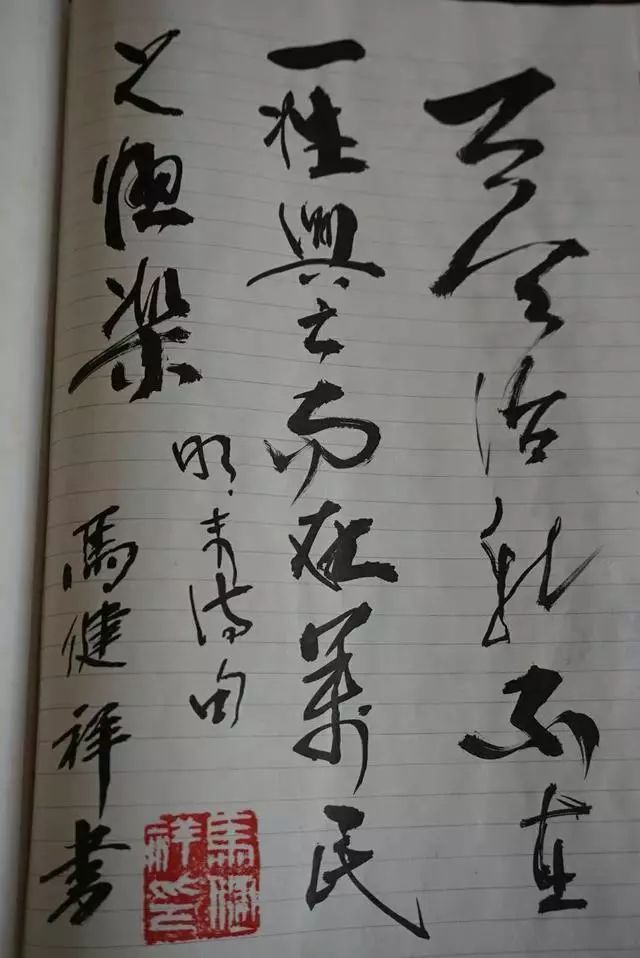 天下治乱不在
一姓興亡而在萬民
之憂樂
明.末清
馬健祥書
馬健祥印